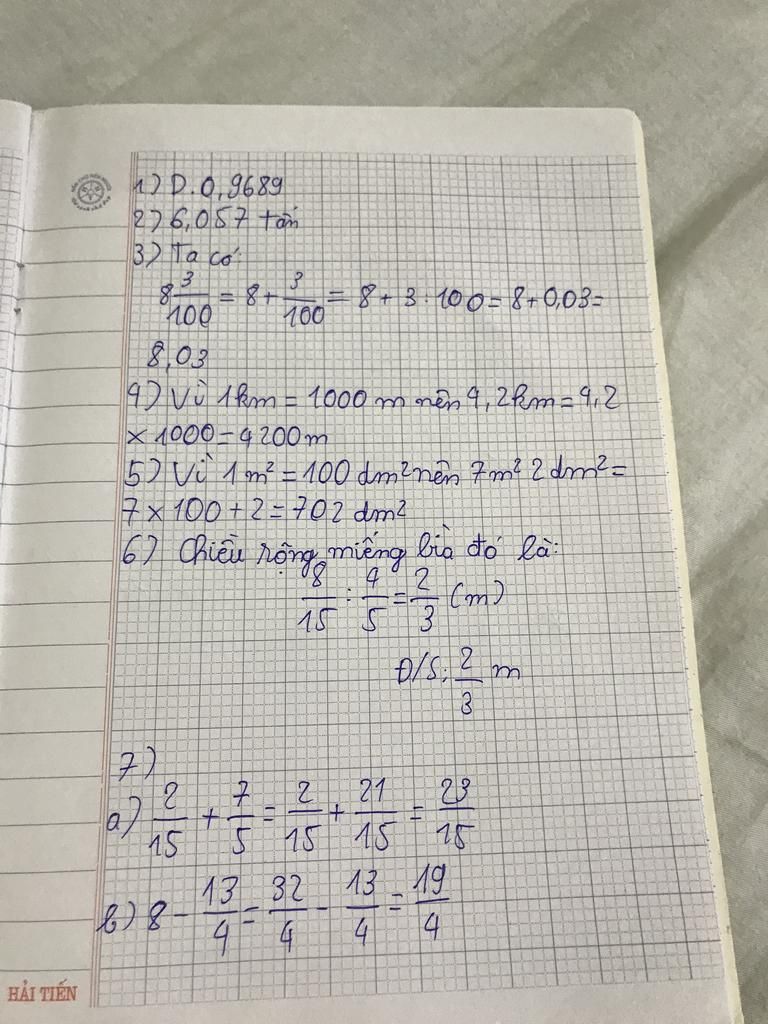 1) D. 0,9689
2) 6,057 tấn
3) Ta có:
8 3/100 = 8 + 3/100 = 8 + 3 : 100 = 8 + 0,03 =
8,03
4) Vì 1km = 1000 m nên 4,2km = 4,2
× 1000 = 4200m
5) Vì 1 m² = 100 dm² nên 7m² 2 dm² =
7 × 100 + 2 = 702 dm²
6) Chiều rộng miếng bìa đó là:
8/15 : 4/5 = 2/3 (m)
Đ/S: 2/3 m
7)
a) 2/15 + 7/5 = 2/15 + 21/15 = 23/15
b) 8 - 13/4 = 32/4 - 13/4 = 19/4
HẢI TIẾN